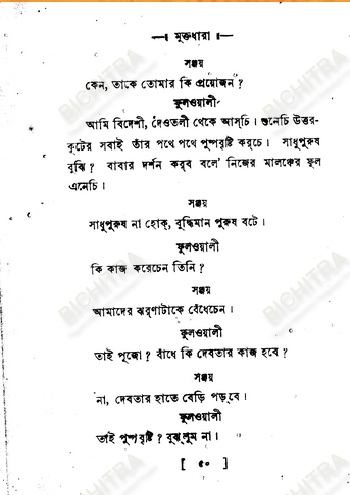 মুক্তধারা
সঞ্জয়
কেন, তাকে তোমার কি প্রয়োজন?
ফুলওয়ালী
আমি বিদেশী, দেওতলী থেকে আস্‌চি। শুনেচি উত্তর-
কূটের সবাই তাঁর পথে পথে পুষ্পবৃষ্টি কর্‌চে। সাধুপুরুষ
বুঝি? বাবার দর্শন করব বলে' নিজের মালঞ্চের ফুল
এনেচি।
সঞ্জয়
সাধুপুরুষ না হোক্, বুদ্ধিমান পুরুষ বটে।
ফুলওয়ালী
কি কাজ করেচেন তিনি?
সঞ্জয়
আমাদের ঝর্‌ণাটাকে বেঁধেচেন।
ফুলওয়ালী
তাই পূজো? বাঁধে কি দেবতার কাজ হবে?
সঞ্জয়
না, দেবতার হাতে বেড়ি পড়্‌বে।
ফুলওয়ালী
তাই পুষ্পবৃষ্টি? বুঝ্‌লুম না।
[ ৫০ ]
BICHITRA